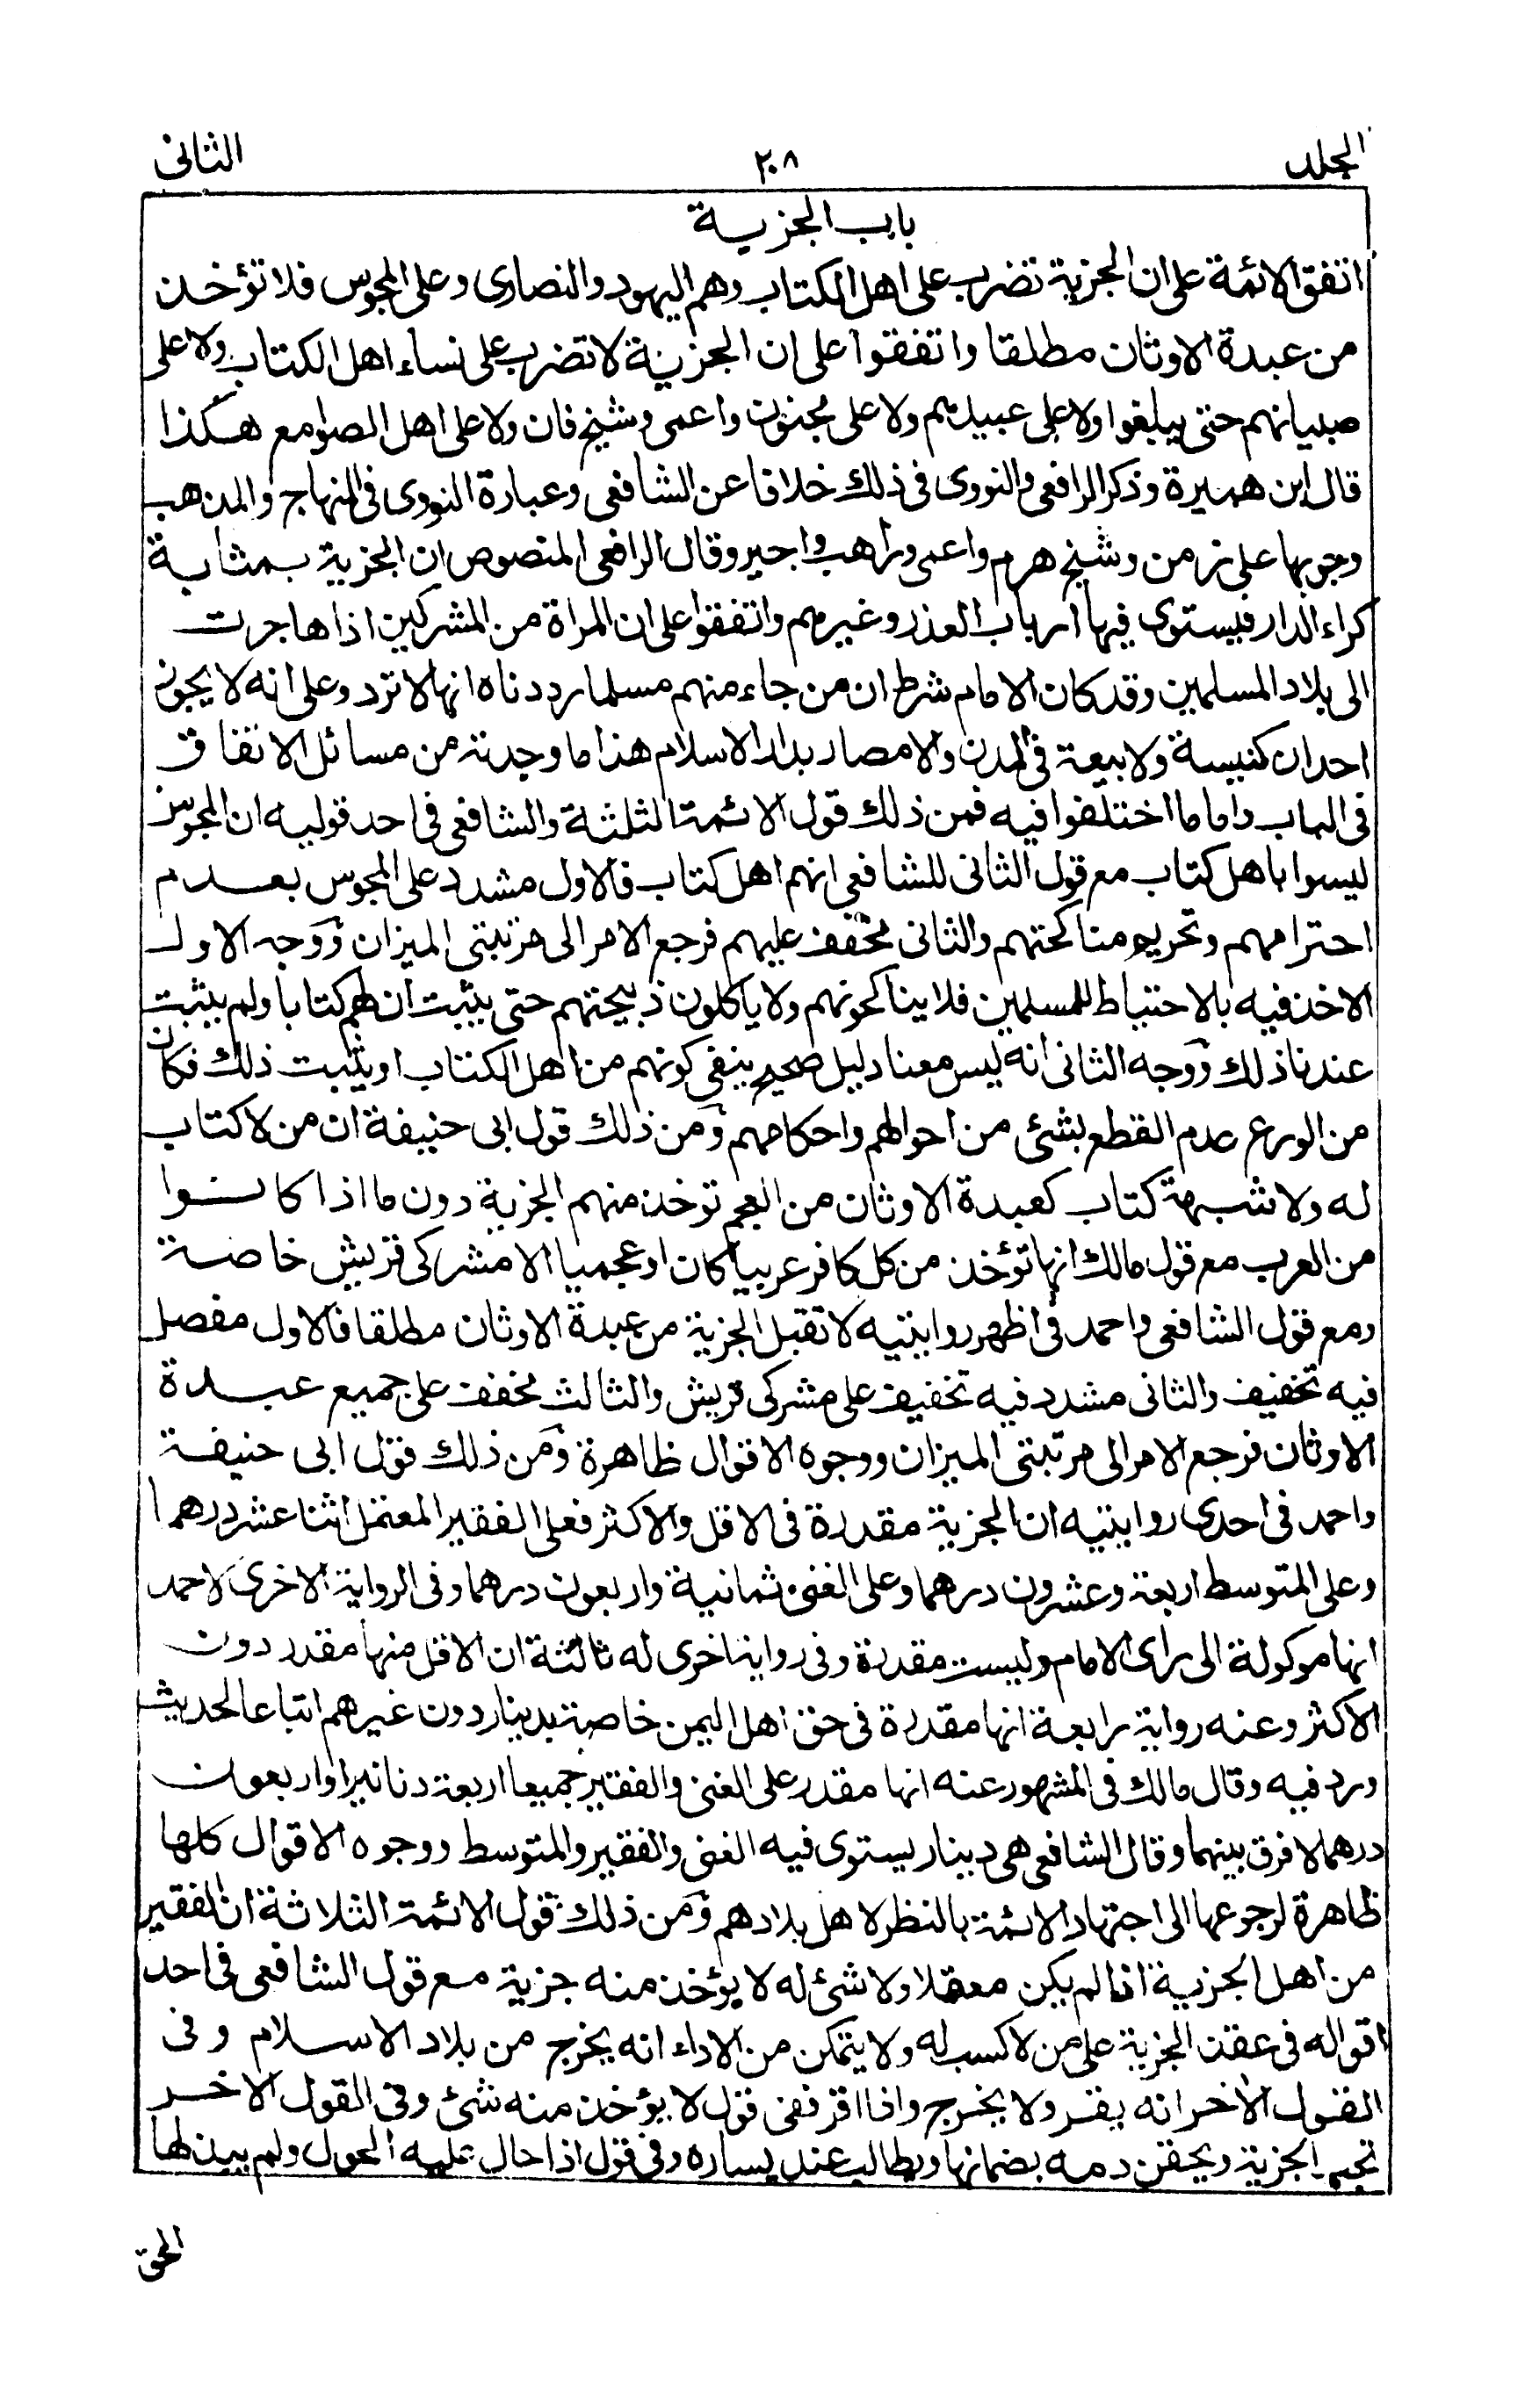 المجلد ٢٠٨ الثانى
باب الجزية
اتفق الائمة على ان الجزية تضرب على اهل الكتاب وهم اليهود والنصارى وعلى المجوس فلا تؤخذ
من عبدة الاوثان مطلقا واتفقوا على ان الجزية لا تضرب على نساء اهل الكتاب ولا على
صبيانهم حتى يبلغوا ولا على عبيدهم ولا على مجنون واعمى وشيخ فان ولا على اهل الصوامع هكذا
قال ابن هبيرة وذكر الرافعى والنووى فى ذلك خلافا عن الشافعى وعبارة النووى فى المنهاج والمذهب
وجوبها على زمن وشيخ هرم واعمى وراهب واجير وقال الرافعى المنصوص ان الجزية بمثابة
كراء الدار فيستوى فيها ارباب العذر وغيرهم واتفقوا على ان المراة من المشركين اذا هاجرت
الى بلاد المسلمين وقد كان الامام شرط ان من جاء منهم مسلما رددناه انها لا ترد وعلى انه لا يجوز
احداث كنيسة ولا بيعة فى المدن والامصار بدار الاسلام هذا ما وجدته من مسائل الاتفاق
فى الباب واما ما اختلفوا فيه فمن ذلك قول الائمة الثلثة والشافعى فى احد قوليه ان المجوس
ليسوا باهل كتاب مع قول الثانى للشافعى انهم اهل كتاب فالاول مشدد على المجوس بعدم
احترامهم وتحريم مناكحتهم والثانى مخفف عليهم فرجع الامر الى مرتبتى الميزان ووجه الاول
الاخذ فيه بالاحتياط للمسلمين فلا يناكحونهم ولا ياكلون ذبيحتهم حتى يثبت ان لهم كتابا ولم يثبت
عندنا ذلك ووجه الثانى انه ليس معنا دليل صحيح ينفى كونهم من اهل الكتاب او يثبت ذلك فكان
من الورع عدم القطع بشئ من احوالهم واحكامهم ومن ذلك قول ابى حنيفة ان من لا كتاب
له ولا شبهة كتاب كعبدة الاوثان من العجم توخذ منهم الجزية دون ما اذا كانوا
من العرب مع قول مالك انها تؤخذ من كل كافر عربيا كان او عجميا الا مشركى قريش خاصة
ومع قول الشافعى واحمد فى اظهر روايتيه لا تقبل الجزية من عبدة الاوثان مطلقا فالاول مفصل
فيه تخفيف والثانى مشدد فيه تخفيف على مشركى قريش والثالث مخفف على جميع عبدة
الاوثان فرجع الامر الى مرتبتى الميزان ووجوه الاقوال ظاهرة ومن ذلك قول ابى حنيفة
واحمد فى احدى روايتيه ان الجزية مقدرة فى الاقل والاكثر فعلى الفقير المعتمل اثنا عشر درهما
وعلى المتوسط اربعة وعشرون درهما وعلى الغنى ثمانية واربعون درهما وفى الرواية الاخرى لاحمد
انها موكولة الى راى الامام وليست مقدرة وفى رواية اخرى له ثالثة ان الاقل منها مقدر دون
الاكثر وعنه رواية رابعة انها مقدرة فى حق اهل اليمن خاصة بدينار دون غيرهم اتباعا لحديث
ورد فيه وقال مالك فى المشهور عنه انها مقدر على الغنى والفقير جميعا اربعة دنانير او اربعون
درهما لا فرق بينهما وقال الشافعى هى دينار يستوى فيه الغنى والفقير والمتوسط ووجوه الاقوال كلها
ظاهرة لرجوعها الى اجتهاد الائمة بالنظر لاهل بلادهم ومن ذلك قول الائمة الثلاثة ان الفقير
من اهل الجزية اذا لم يكن معتملا ولا شئ له لا يؤخذ منه جزية مع قول الشافعى فى احد
اقواله فى عقد الجزية على من لا كسب له ولا يتمكن من الاداء انه يخرج من بلاد الاسلام وفى
القول الاخر انه يقر ولا يخرج واذا اقر ففى قول لا يؤخذ منه شئ وفى القول الاخر
تجب الجزية ويحقن دمه بضمانها ويطالب عند يساره وفى قول اذا حال عليه الحول ولم يبذلها
الحق